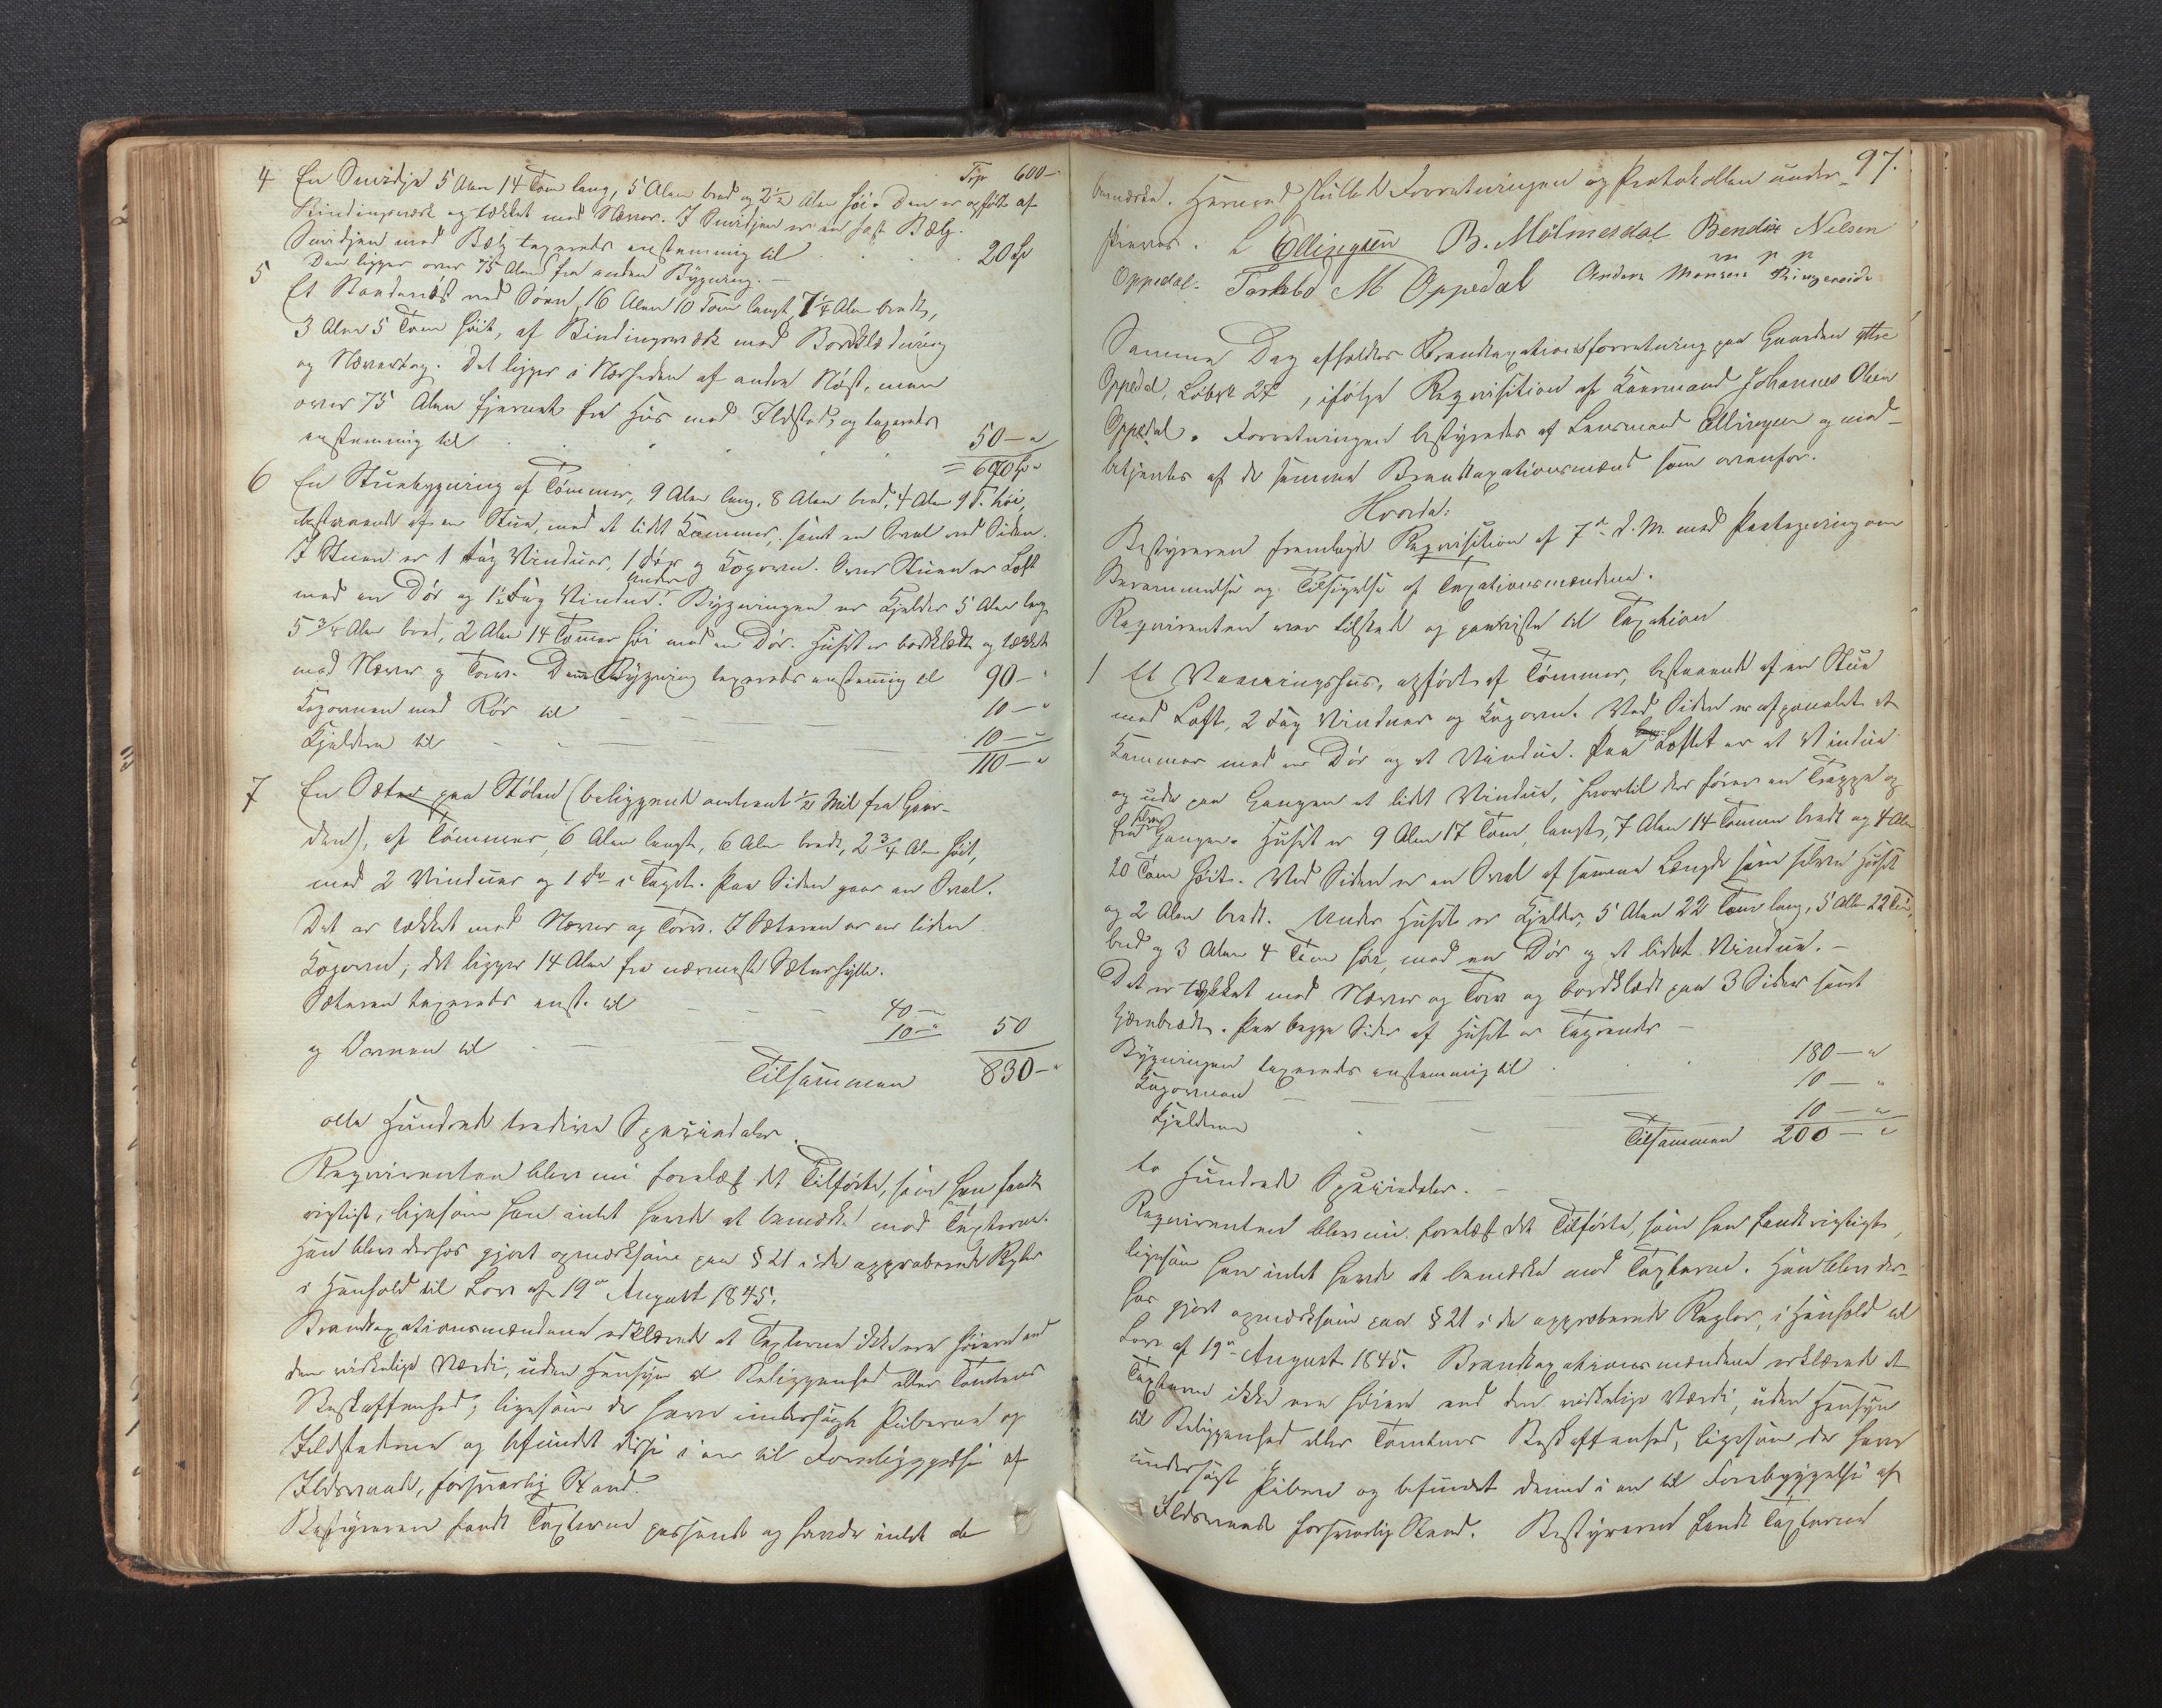 Trp 600 –
4 En Smidje 5 Alen 14 Tom lang, 5 Alen bred og 2 1/2 Alen høi. Den er opført af
Bindingsværk og tækket med Næver. I Smidjen er en fast Bælg.
Smidjen med Bælg taxeredes enstemmig til . . . . 20 Sp
Den ligger over 75 Alen fra anden Bygning. –
5 Et Standnøst ved Søen, 16 Alen 10 Tom langt, 7 1/4 Alen bredt,
3 Alen 5 Tom høit, af Bindingsværk med Bordklædning
og Nævertag. Det ligger i Nærheden af andre Nøst, men
over 75 Alen fjernet fra Huus med Ildsted, og taxeredes
enstemmig til . . . . 50 – "
= 670 Sp "
6 En Stuebygning af Tømmer, 9 Alen lang, 8 Alen bred, 4 Alen 9 T. høi,
bestaaende af en Stue, med et lidet Kammer, samt en Sval ved Siden.
I Stuen er 1 Fag Vinduer, 1 Dør og Kogovn. Over Stuen er Loft
med en Dør og 1 1/2 Fag Vinduer. Under Bygningen er Kjelder 5 Alen lang
5 3/4 Alen bred, 2 Alen 14 Tommer høi med en Dør. Huset er bordklædt og tækket
med Næver og Torv. Denne Bygning taxeredes enstemmig til 90 – "
Kogovnen med Rør til – – – 10 – "
Kjelderen til – – – 10 – "
110 – "
7 En Sæter paa Stølen (beliggende omtrent 1/2 Mil fra Gaar-
den), af Tømmer, 6 Alen langt, 6 Alen bredt, 2 3/4 Alen høit,
med 2 Vinduer og 1 do i Taget. Paa Siden gaar en Sval.
Det er tækket med Næver og Torv. I Sæteren er en liden
Kogovn; det ligger 14 Alen fra nærmeste Sæterhytte.
Sæteren taxeredes enst. til – – – 40 – "
og Ovnen til – – – 10 – " 50
Tilsammen 830 – "
otte Hundrede tredive Speciedaler.
Requirenten blev nu forelæst det Tilførte, som han fandt
rigtigt, ligesom han intet havde at bemærke mod Taxterne.
Han blev derhos gjort opmærksom paa § 21 i de approberede Regler
i Henhold til Lov af 19de August 1845.
Brandtaxationsmændene erklærede at Taxterne ikke ere høiere end
den virkelige Værdi, uden Hensyn til Beliggenhed eller Tomtens
Beskaffenhed; ligesom de have undersøgt Piberne og
Ildstederne og befundet disse i en til Forebyggelse af
Ildsvaade, forsvarlig Stand.
Bestyreren fandt Taxterne passende og havde intet at
97.
bemærke. Hermed sluttet Forretningen og Protokollen under-
skreves. L Ellingsen B. Mølmesdal Bendix Nilsen
m p p
Oppedal. Torkild M Oppedal Anders Monsen Ringereide
Samme Dag afholdtes Brandtaxationsforretning paa Gaarden ytre
Oppedal, Løbr 27, ifølge Requisition af Kaarmand Johannes Olsen
Oppedal. Forretningen bestyredes af Lensmand Ellingsen og med-
betjentes af de samme Brandtaxationsmænd som ovenfor.
Hvorda:
Bestyreren fremlagde Requisition af 7de d. M. med Paategning om
Berammelse og Tilsigelse af Taxationsmændene.
Requirenten var tilstede og paaviste til Taxation
1 Et Vaaningshus, opført af Tømmer, bestaaende af en Stue
med Loft, 2 Fag Vinduer og Kogovn. Ved Siden er afpanelet et
Kammer med en Dør og et Vindue. Paa Loftet er et Vindue
og ude paa Gangen et lidet Vindue, hvortil der fører en Trappe og
fra Gangen. Huset er 9 Alen 17 Tom langt, 7 Alen 14 Tommer bredt og 4 Alen
20 Tom høit. Ved Siden er en Sval af samme Længde som selve Huset
og 2 Alen bredt. Under Huset er Kjelder, 5 Alen 22 Tom lang, 5 Alen 22 Tom
bred og 3 Alen 4 Tom høi, med en Dør og et lidet Vindue. –
Det er tækket med Næver og Torv og bordklædt paa 3 Sider samt
hjørnebrædt. Paa begge Sider af Huset er Tagrender –
Bygningen taxeredes enstemmig til . . . 180 – "
Kogovnen – – – 10 – "
Kjelderen – – 10 – "
Tilsammen 200 – "
to Hundrede Speciedaler. –
Requirenten blev nu forelæst det Tilførte, som han fandt rigtigt,
ligesom han intet havde at bemærke mod Taxterne. Han blev der-
hos gjort opmærksom paa § 21 i de approberede Regler, i Henhold til
Lov af 19de August 1845. Brandtaxationsmændene erklærede at
Taxterne ikke ere høiere end den virkelige Værdi, uden Hensyn
til Beliggenhed eller Tomtens Beskaffenhed, ligesom de have
undersøgt Piben og befundet denne i en til Forebyggelse af
Ildsvaade forsvarlig Stand. Bestyreren fandt Taxterne